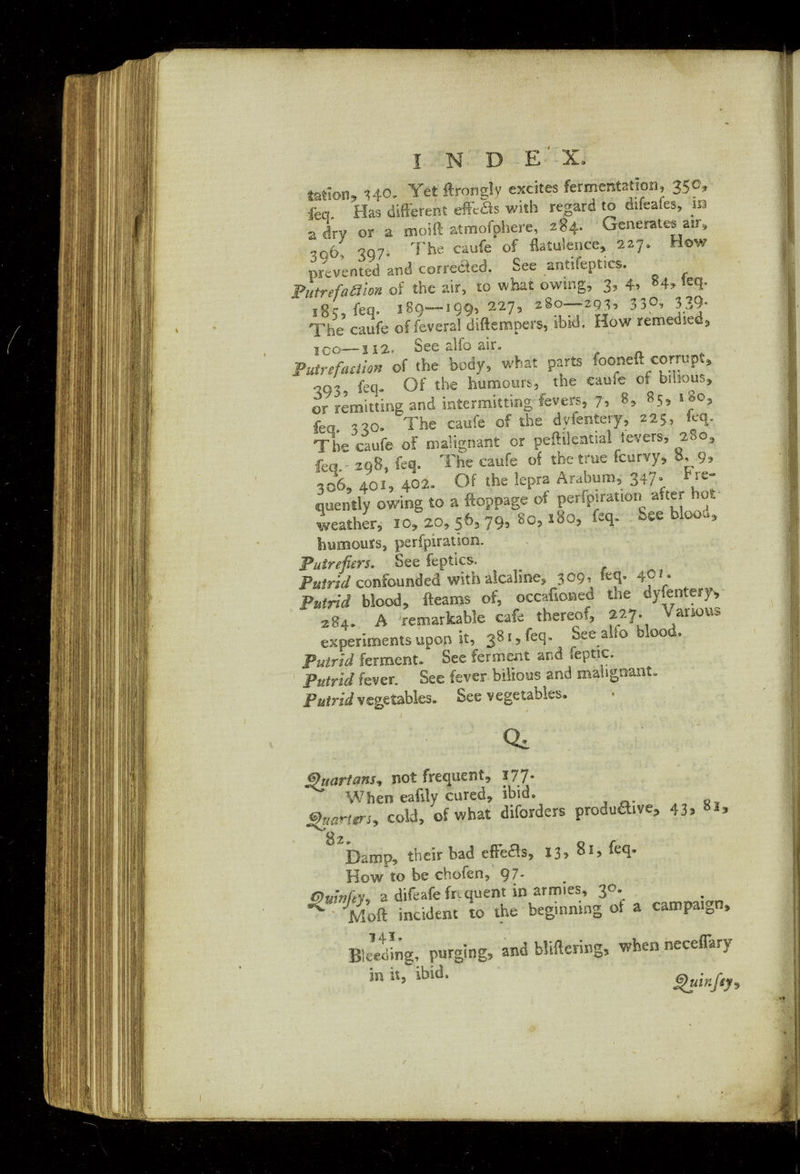 INDEX.
tation, 340. Yet ſtrongly excites fermentation, 350,
ſeq. Has different effects with regard to diſeaſes, in
a dry or a moiſt atmoſphere, 284. Generates air,
396, 397. The cauſe of flatulence, 227. How
prevented and corrected. See antiſeptics.
Putrefaction of the air, to what owing, 3, 4, 84, ſeq.
185, ſeq. 189—199, 227, 280—293, 330, 339.
The cauſe of ſeveral diſtempers, ibid. How remedied,
100—112. See alſo air.
Putrefaction of the body, what parts ſooneſt corrupt,
393, ſeq. Of the humours, the cauſe of bilious,
or remitting and intermitting fevers, 7, 8, 85, 180,
ſeq. 330. The cauſe of the dyſentery, 225, ſeq.
The cauſe of malignant or peſtilential fevers, 280,
ſeq. 298, ſeq. The cauſe of the true ſcurvy, 8, 9,
306, 401, 402. Of the lepra Arabum, 347. Fre-
quently owing to a ſtoppage of perſpiration after hot
weather, 10, 20, 56, 79, 80, 180, ſeq. See blood,
humours, perſpiration.
Putrefiers. See ſeptics.
Putrid confounded with alcaline, 309, ſeq. 401.
Putrid blood, ſteams of, occaſioned the dyſentery,
284. A remarkable caſe thereof, 227. Various
experiments upon it, 381, ſeq. See alſo blood.
Putrid ferment. See ferment and ſeptic.
Putrid fever. See fever bilious and malignant.
Putrid vegetables. See vegetables.
Q.
Quartans, not frequent, 177.
When eaſily cured, ibid.
Quarters, cold, of what diſorders productive, 43, 81,
82.
Damp, their bad effects, 13, 81, ſeq.
How to be choſen, 97.
Quinſey, a diſeaſe frequent in armies, 30.
Moſt incident to the beginning of a campaign,
141.
Bleeding, purging, and bliſtering, when neceſſary
in it, ibid.
Quinſey,